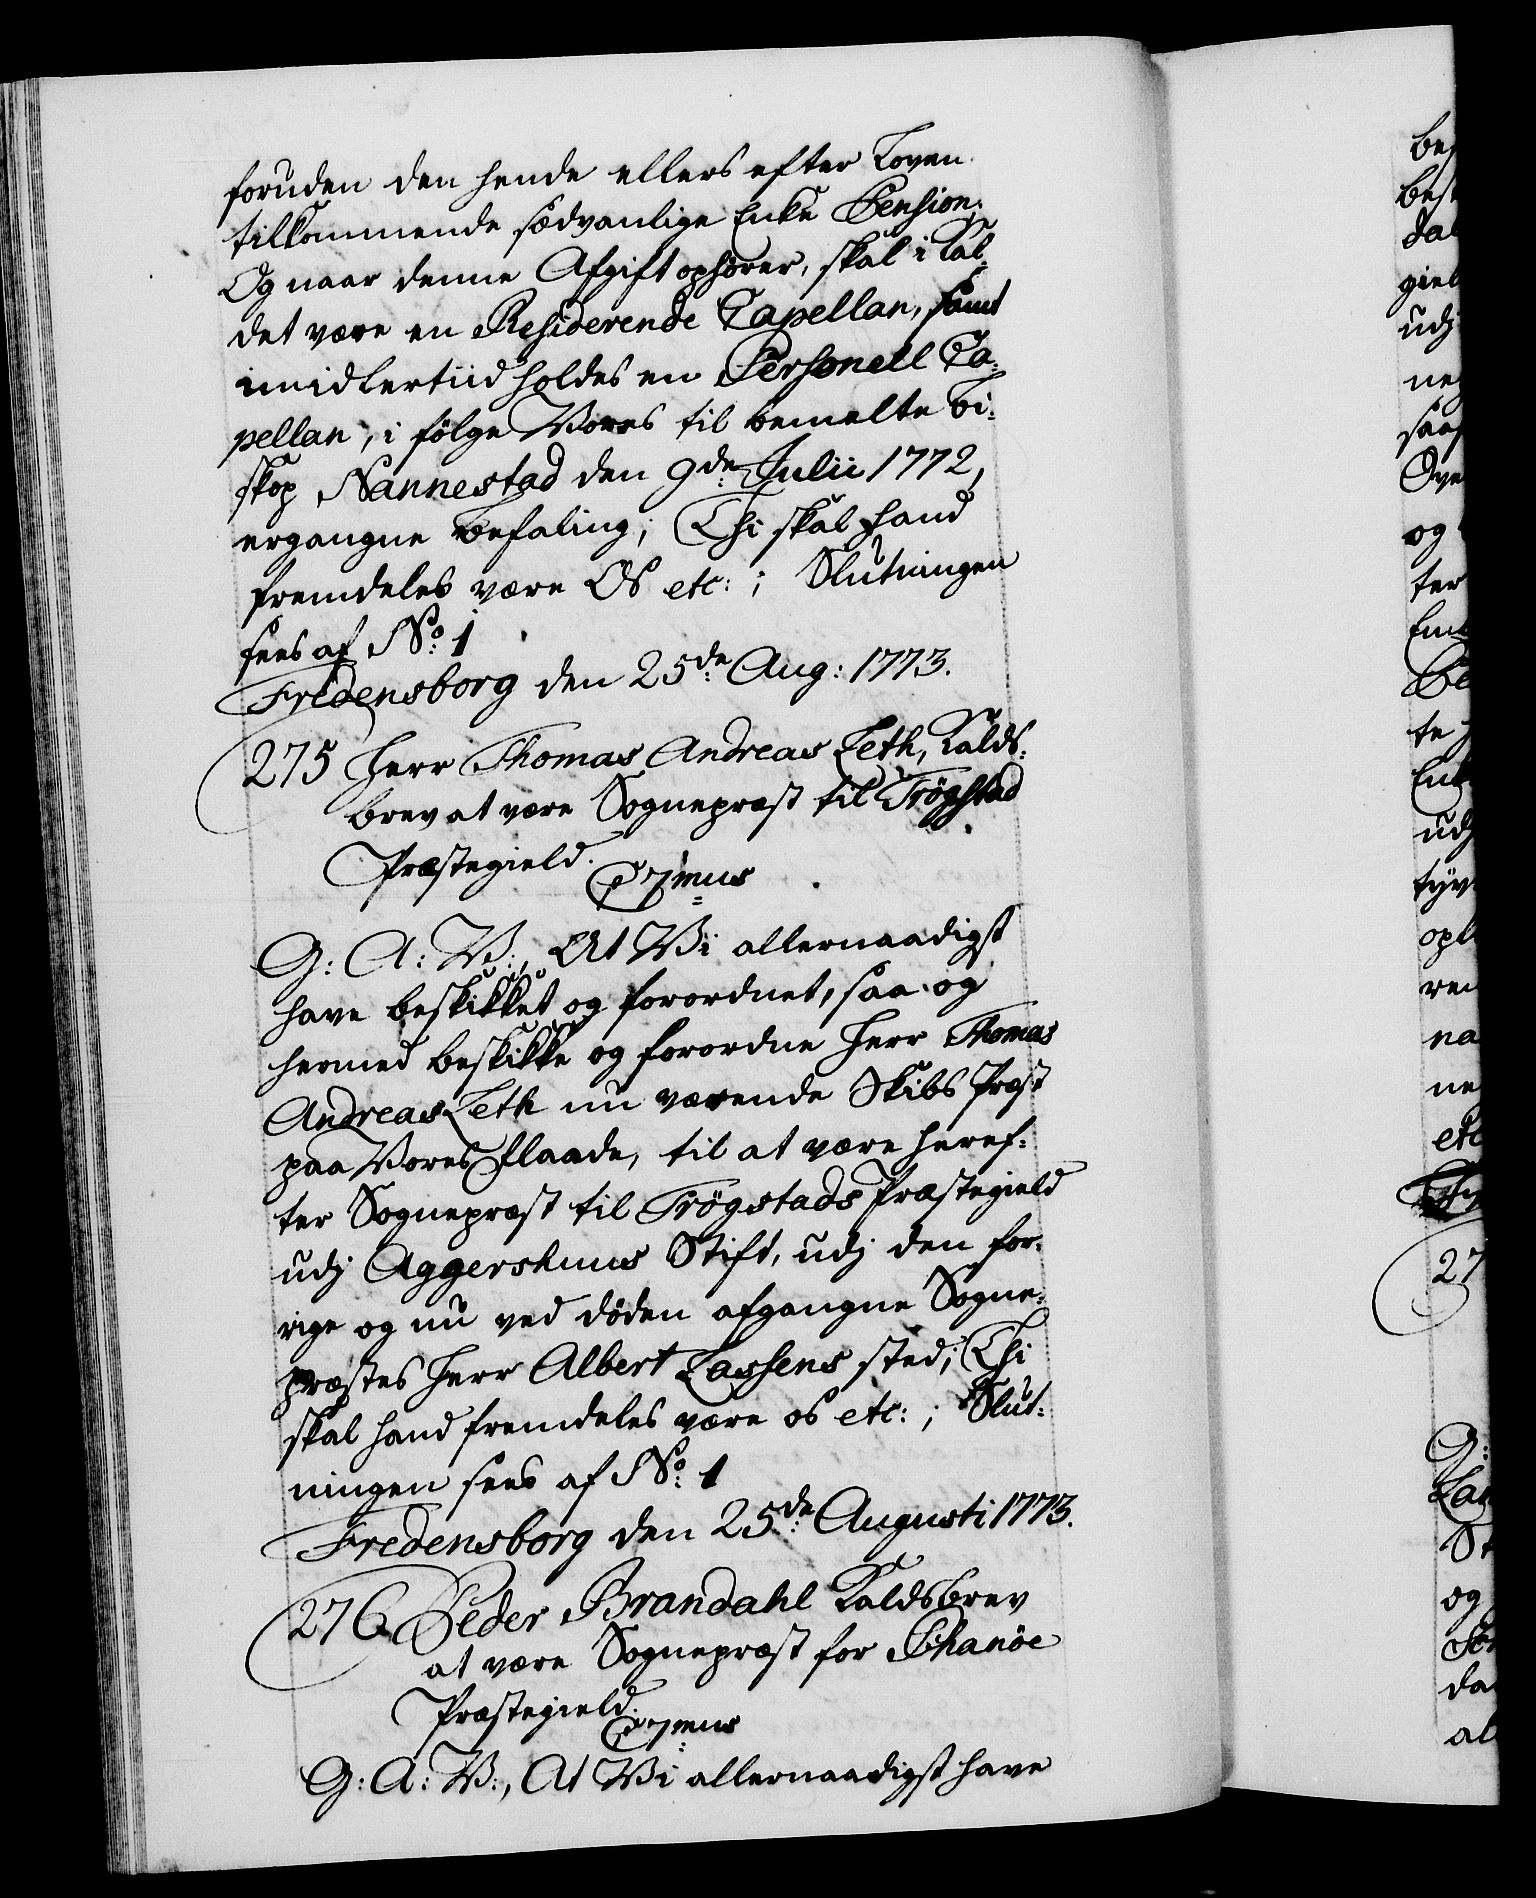 foruden den hende ellers efter Loven
tilkommende sædvanlige Enke Pension;
Og naar denne Afgift ophører, skal i Kal-
det være en Residerende Capellan, samt
imidlertiid holdes en Personell Ca-
pellan, i følge Vores til bemelte Bi-
skop Nannestad den 9de Julii 1772,
ergangne Befaling; Thi skal hand
fremdeles være Os etc: ; Slutningen
sees af No: 1
Fredensborg den 25de Aug: 1773.
275 Herr Thomas Andreas Leth, Kalds-
brev at være Sognepræst til Trögstad
Præstegield.
C 7mus
G: A: V:, At Vi allernaadigst
have beskikket og forordnet, saa og
hermed beskikke og forordne Herr Thomas
Andreas Leth nu værende Skibs Præst
paa Vores Flaade, til at være heref-
ter Sognepræst til Trögstads Præstegield
udj Aggershuus Stift, udj den for-
rige og nu ved döden afgangne Sogne-
præstes Herr Albert Lassens sted; Thi
skal hand fremdeles være os etc: ; Slut-
ningen sees af No: 1
Fredensborg den 25de Augusti 1773.
276 Peder Brandahl Kaldsbrev
at være Sognepræst for Schanöe
Præstegield.
C 7mus
G: A: V:, At Vi allernaadigst have